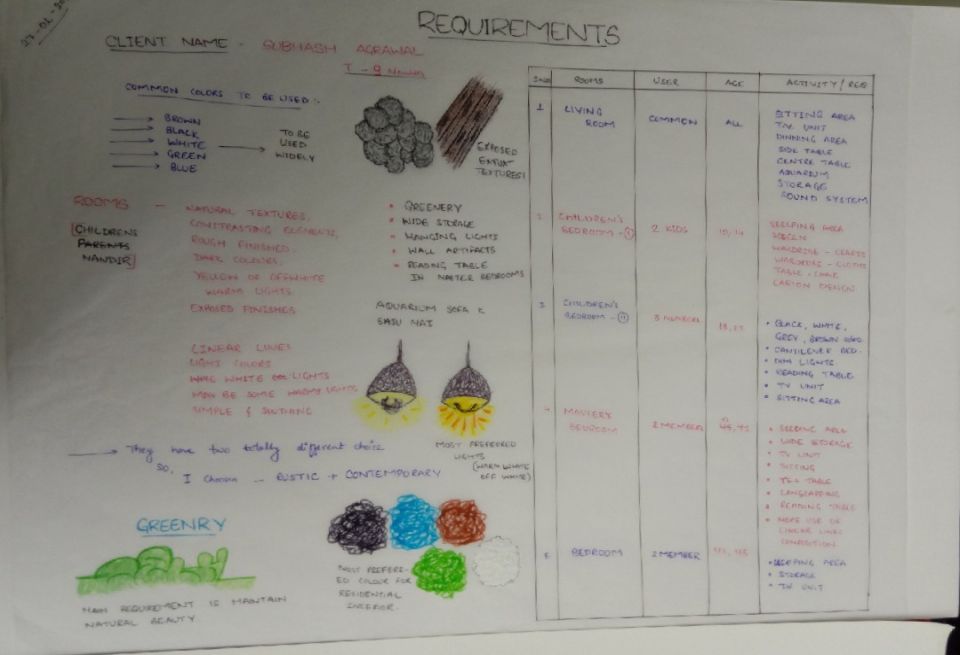 REQUIREMENTS
CLIENT NAME - SUBHASH AGRAWAL
COMMON COLORS TO BE USED :-
BROWN
BLACK
WHITE
GREEN
BLUE
TO BE
USED
WIDELY
EXPOSED
TEXTURES!
ROOMS - NATURAL TEXTURES,
CONSTRASTING ELEMENTS,
ROUGH FINISHED.
DARK COLOURS.
YELLOW OR OFFWHITE
WARM LIGHTS
EXPOSED FINISHES
[CHILDRENS
PARENTS
MANDIR]
GREENERY
WIDE STORAGE
HANGING LIGHTS
WALL ARTIFACTS
READING TABLE
IN MASTER BEDROOMS
AQUARIUM SOFA K
LINEAR LINES
LIGHT COLORS
WHITE LIGHTS
MAY BE SOME WARM LIGHTS
SIMPLE & SOOTHING
MOST PREFERRED
LIGHTS
(WARM WHITE
OFF WHITE)
They have two totally different choice
So, I choosen - RUSTIC + CONTEMPORARY
GREENRY
MAIN REQUIREMENT IS MAINTAIN
NATURAL BEAUTY
MOST PREFERE-
ED COLOUR FOR
RESIDENTIAL
INTERIOR.
ROOMS USER AGE ACTIVITY / REQ
1. LIVING ROOM COMMON ALL
SITTING AREA
T.V. UNIT
DINNING AREA
SIDE TABLE
CENTRE TABLE
AQUARIUM
STORAGE
SOUND SYSTEM
2. CHILDREN'S
BEDROOM - (I) 2 KIDS
SLEEPING AREA
TABLE, CHAIR
3. CHILDREN'S
BEDROOM - (II)
BLACK, WHITE,
GREY, BROWN USED.
CANTILEVER BED.
DIM LIGHTS
READING TABLE
TV UNIT
SITTING AREA
4.
BEDROOM 2 MEMBER
WIDE STORAGE
TV UNIT
SITTING
TEA TABLE
READING TABLE
MORE USE OF
LINEAR LINES
5. BEDROOM 2 MEMBER
SLEEPING AREA
STORAGE
TV UNIT